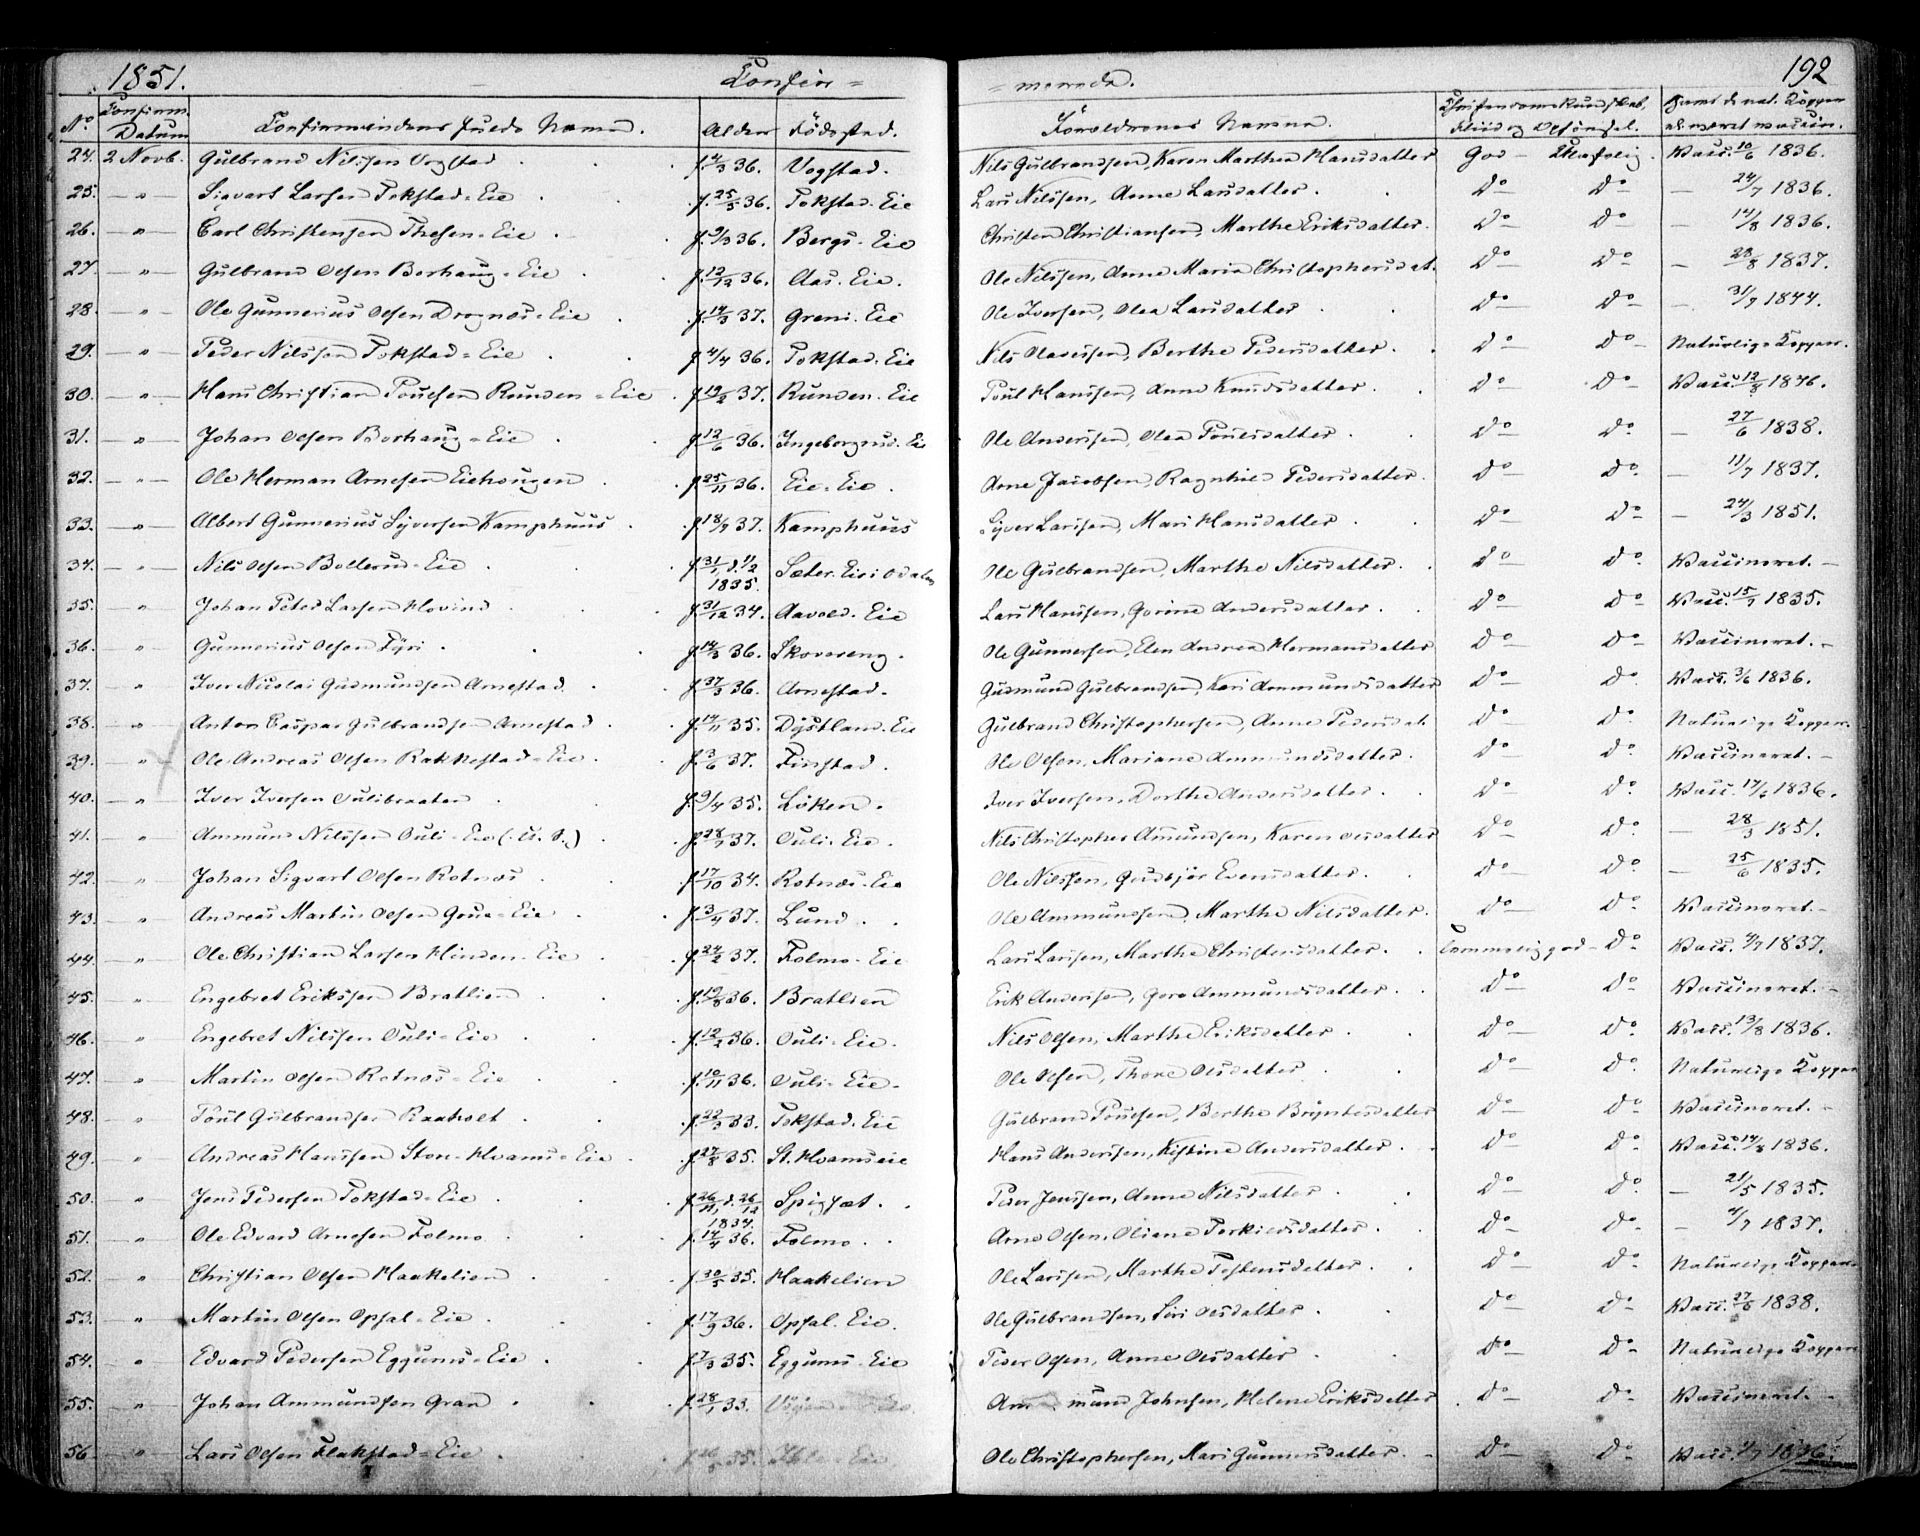 1851. Confir = = merede. 192
No Confirm. Datum Confirmandens fulde Navne. Alder Födested. Forældrenes Navne. Christendoms Kundskab, Fliid og Opförsel. Havt de nat. Kopper el. været vaccin.
24. 2 Novb. Gulbrand Nilssen Vogstad f. 4/3 36. Vogstad. Nils Gulbrandsen, Karen Marthea Hansdatter God - Skikkelig. Vacc. 10/6 1836.
25. — " — Sigvart Larsen Tokstad-Eie f. 25/5 36. Tokstad-Eie Lars Nilssen, Anne Larsdatter. Do Do — 24/7 1836.
26. — " — Carl Christensen Thesen-Eie f. 9/3 36. Bergs-Eie Christen Christiansen, Marthe Eriksdatter. Do Do — 14/8 1836.
27. — " — Gulbrand Olsen Borhaug-Eie f. 12/12 36. Aas-Eie. Ole Nilssen, Anne Maria Christophersdat. Do Do — 28/8 1837.
28. — " — Ole Gunnerius Olsen Drognæs-Eie f. 14/3 37. Greni-Eie Ole Iversen, Olea Larsdatter Do Do — 31/7 1844.
29. — " — Peder Nilssen Tokstad-Eie f. 4/4 36. Tokstad-Eie Nils Olavessen, Berthe Pedersdatter. Do Do — Naturlige Kopper.
30. — " — Hans Christian Poulsen Runden-Eie f. 12/2 37. Runden-Eie Poul Hanssen, Anne Knudsdatter. Do Do Vacc. 12/8 1846.
31. — " — Johan Olsen Borhaug-Eie f. 12/6 36. Ingeborgrud-Eie Ole Anderssen, Olea Poulsdatter. Do Do — 27/6 1838.
32. — " — Ole Herman Arnesen Eiehougen f. 25/11 36. Eie-Eie. Arne Jacobsen, Ragnhild Pedersdatter. Do Do — 11/7 1837.
33. — " — Albert Gunnerius Syversen Kamphuus f. 18/7 37. Kamphuus Syver Larssen, Mari Hansdatter Do Do — 24/3 1851.
34. — " — Nils Olsen Bollerud-Eie f. 31/1 d. 11/2 1835. Sæter-Eie i Odalen Ole Gulbrandsen, Marthe Nilsdatter. Do Do Vaccineret.
35. — " — Johan Peter Larsen Hovind f. 31/12 34. Aavold-Eie Lars Hanssen, Gorine Andersdatter. Do Do Vacc. 15/7 1835.
36. — " — Gunnerius Olsen Fyri f. 14/3 36. Skovereng. Ole Gunnersen, Elen Andrea Hermansdatter Do Do Vaccineret.
37. — " — Iver Nicolai Gudmundsen Arnestad f. /3 36. Arnestad. Gudmund Gulbrandsen, Kari Ammundsdatter Do Do Vacc. 3/6 1836.
38. — " — Anton Caspar Gulbrandsen Arnestad f. 14/11 35. Dystland-Eie Gulbrand Christophersen, Anne Pedersdat. Do Do Naturlige Kopper.
39. — " — Ole Andreas Olsen Rakkestad-Eie f. 3/6 37. Finstad. Ole Olsen, Mariane Ammundsdatter. Do Do Vaccineret.
40. — " — Iver Iversen Oulibraaten f. 9/4 35. Löken. Iver Iversen, Dorthe Andersdatter. Do Do Vacc. 17/6 1836.
41. — " — Ammund Nilssen Ouli-Eie f. 28/7 37. Ouli-Eie. Nils Christopher Amundsen, Karen Olsdatter Do Do — 28/3 1851.
42. — " — Johan Sigvart Olsen Rotnæs f. 17/10 34. Rotnæs-Eie Ole Nilssen, Gudbjör Evensdatter. Do Do — 25/6 1835.
43. — " — Andreas Martin Olsen Goue-Eie f. 3/4 37. Lund. Ole Ammundsen, Marthe Nilsdatter. Do Do Vaccineret.
44. — " — Ole Christian Larsen Hinden-Eie f. 24/2 37. Folmo-Eie Lars Larssen, Marthe Christensdatter. Temmelig god Do Vacc. 4/7 1837.
45. — " — Engebret Erikssen Bratlien f. 19/8 36. Bratlien Erik Anderssen, Goro Ammundsdatter. Do Do Vaccineret.
46. — " — Engebret Nilssen Ouli-Eie f. 12/2 36. Ouli-Eie. Nils Olsen, Marthe Eriksdatter. Do Do Vacc. 13/8 1836.
47. — " — Martin Olsen Rotnæs-Eie f. 10/11 36. Ouli-Eie. Ole Olsen, Thore Olsdatter Do Do Naturlige Kopper
48. — " — Poul Gulbrandsen Raaholt f. 22/3 33. Tokstad-Eie Gulbrand Poulsen, Berthe Bryntesdatter Do Do Vaccineret.
49. — " — Andreas Hanssen Store-Hvams-Eie f. 27/8 35. St. Hvamseie Hans Anderssen, Kistine Andersdatter. Do Do Vacc. 14/8 1836.
50. — " — Jens Pedersen Tokstad-Eie f. 26/11 d. 26/12 1834. Spigset. Peder Jenssen, Anne Nilsdatter Do Do — 21/5 1835.
51. — " — Ole Edvard Arnesen Folmo f. 14/4 36. Folmo. Arne Olsen, Oliane Terkildsdatter. Do Do — 4/7 1837.
52. — " — Christian Olsen Haakelien f. 30/5 35. Haakelien Ole Larssen, Marthe Tostensdatter. Do Do Naturlige Kopper
53. — " — Martin Olsen Opsal-Eie f. 17/9 36. Opsal-Eie. Ole Gulbrandsen, Siri Olsdatter. Do Do Vacc. 27/6 1838.
54. — " — Edvard Pedersen Eggums-Eie f. 7/3 35. Eggums-Eie Peder Olsen, Anne Olsdatter. Do Do Naturlige Kopper
55. — " — Johan Ammundsen Gran f. 28/1 33. Ammund Johnsen, Helene Eriksdatter Do Do Vaccineret.
56. — " — Lars Olsen Flakstad-Eie 35. Eie Ole Christophersen, Mari Gunnersdatter. Do Do Vacc. 1836.